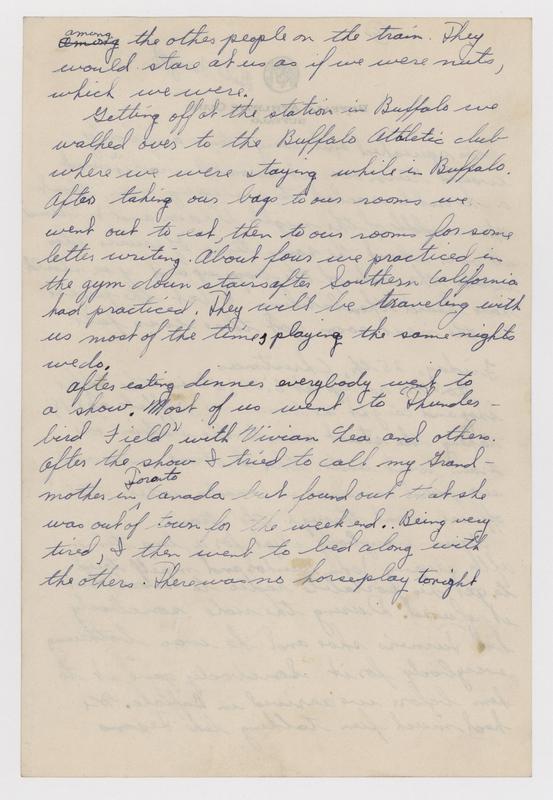 among
among the other people on the train. They
would stare at us as if we were nuts,
which we were.
Getting off at the station in Buffalo we
walked over to the Buffalo Athletic club
where we were staying while in Buffalo.
After taking our bags to our rooms we
went out to eat, then to our rooms for some
letter writing. About four we practiced in
the gym down stairs after Southern California
had practiced. They will be traveling with
us most of the time, playing the same nights
we do.
After eating dinner everybody went to
a show. Most of us went to "Thunder-
bird Field" with Vivian Lea and others.
After the show I tried to call my Grand-
Toronto
mother in Canada but found out that she
was out of town for the week end. Being very
tired, I then went to bed along with
the others. There was no horseplay tonight